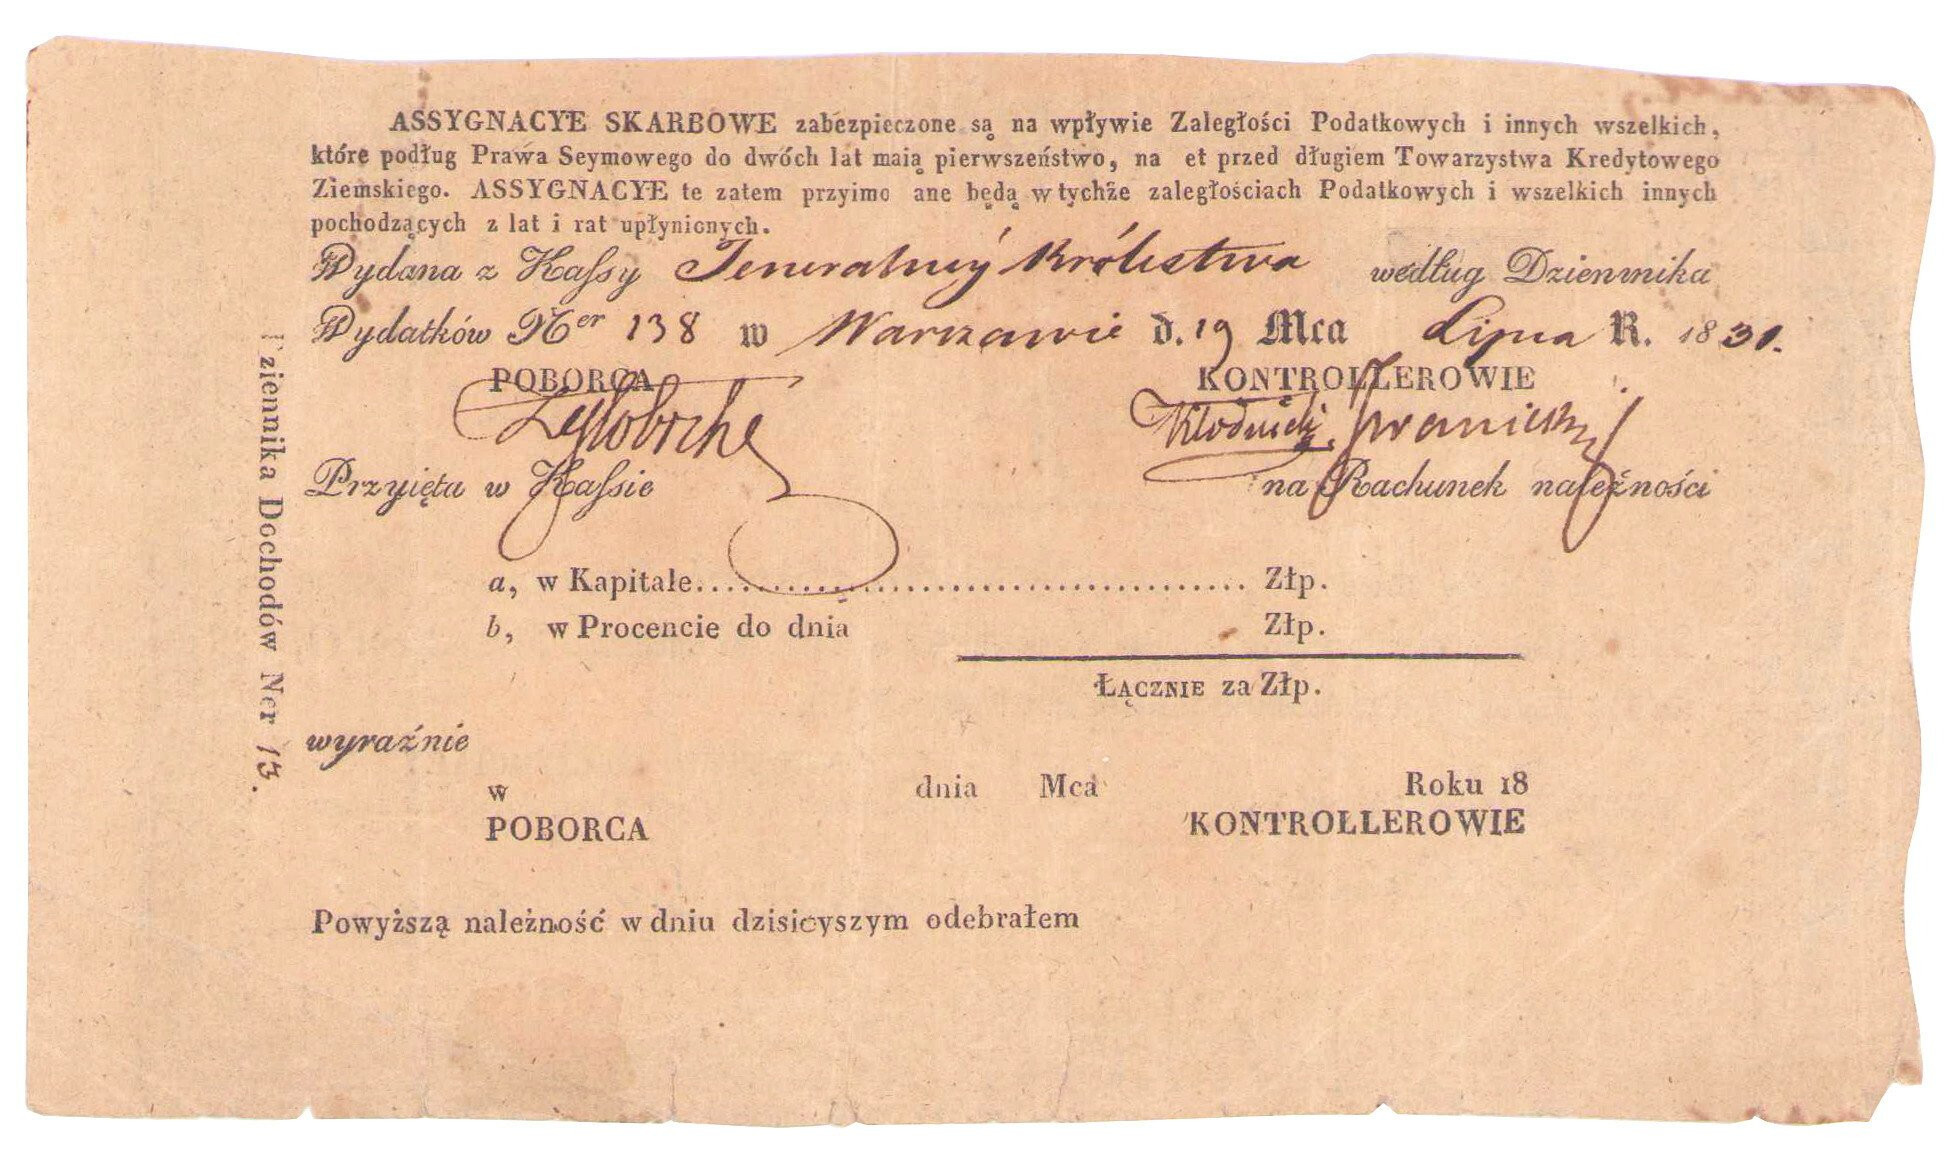 ASSYGNACYE SKARBOWE zabezpieczone są na wpływie Zaległości Podatkowych i innych wszelkich,
które podług Prawa Seymowego do dwóch lat maią pierwszeństwo, na et przed długiem Towarzystwa Kredytowego
Ziemskiego. ASSYGNACYE te zatem przyimo ane będą w tychże zaległościach Podatkowych i wszelkich innych
pochodzących z lat i rat upłynionych.
Wydana z Kassy Jeneralney Królestwa według Dziennika
Wydatków Ner 138 w Warszawie d. 19 Mca Lipca R. 1831.
POBORCA KONTROLLEROWIE
Kłodnicki
Przyięta w Kassie na Rachunek należności
a, w Kapitale........................................ Złp.
b, w Procencie do dnia Złp.
ŁĄCZNIE za Złp.
wyraźnie
w dnia Mca Roku 18
POBORCA KONTROLLEROWIE
Powyższą należność w dniu dzisieyszym odebrałem
Dziennika Dochodów Ner 13.